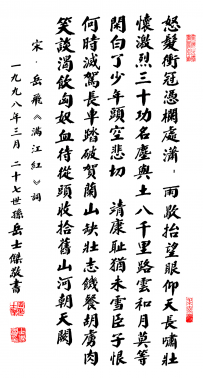 怒髮衝冠憑欄處瀟々雨歇抬望眼仰天長嘯壯
懷激烈三十功名塵與土八千里路雲和月莫等
閑白了少年頭空悲切 靖康恥猶未雪臣子恨
何時滅駕長車踏破賀蘭山缺壯志饑餐胡虜肉
笑談渴飲匈奴血待從頭收拾舊山河朝天闕
宋·岳飛《滿江紅》詞
一九九八年三月 二十七世孫岳士傑敬書